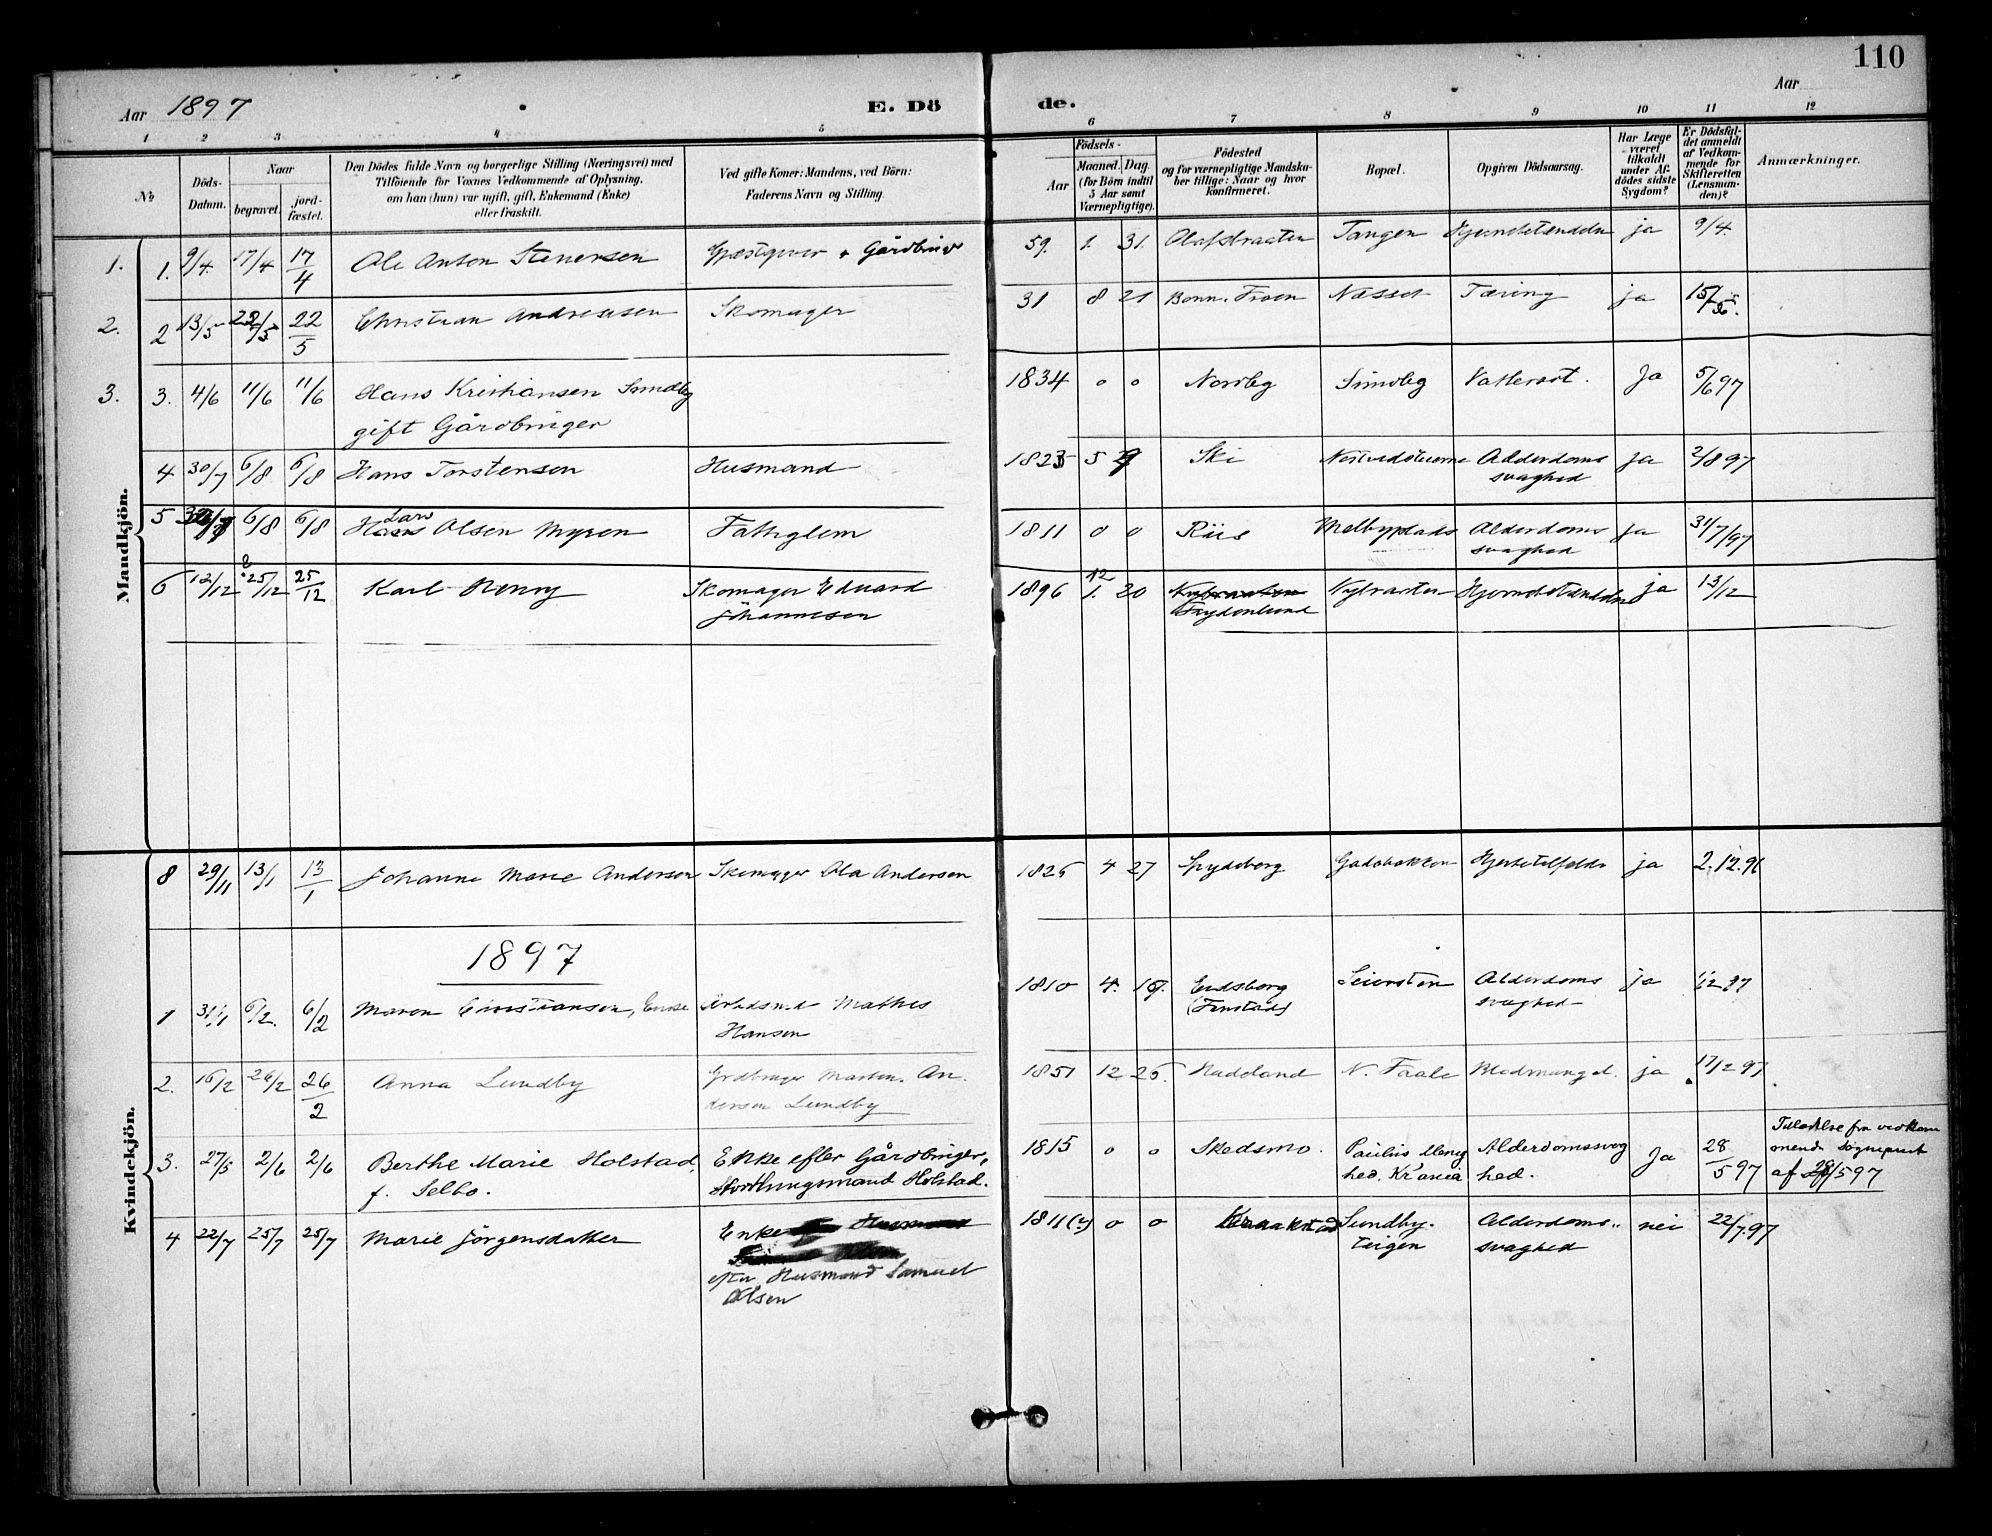 110
Aar 1897 E. Dö de. Aar
1 2 3 4 5 6 7 8 9 10 11 12
№
Döds-Datum.
Naar
begravet.
jord-fæstet.
Den Dödes fulde Navn og borgerlige Stilling (Næringsvei) med
Tilföiende for Voxnes Vedkommende af Oplysning,
om han (hun) var ugift, gift, Enkemand (Enke)
eller fraskilt.
Ved gifte Koner: Mandens, ved Börn:
Faderens Navn og Stilling.
Födsels-
Aar
Maaned. Dag.
(for Börn indtil
5 Aar samt
Værnepligtige).
Födested
og for værnepligtige Mandska-
ber tillige: Naar og hvor
konfirmeret.
Bopæl.
Opgiven Dödsaarsag.
Har Læge
været
tilkaldt
under Af-
dödes sidste
Sygdom?
Er Dödsfal-
det anmeldt
af Vedkom-
mende for
Skifteretten
(Lensman-
den)?
Anmærkninger.
Mandkjön.
1. 1. 9/4 17/4 17/4 Ole Anton Stenersen Gjæstgiver + Gårdbruger 59. 1. 31. Olafsbraaten Tangen Hjernebetændelse ja 9/4.
2. 2 13/5 22/5 22/5 Christian Andreasen Skomager 31 8 21 Bonn. Froen Næsset Tæring ja 15/5.
3. 3. 4/6 11/6 11/6 Hans Kristiansen Sundby 1834 0 0 Nordby Sundby Vattersot. Ja 5/6 97
gift Gårdbruger
4 30/7 6/8 6/8 Hans Torstensen Husmand 1825 5 9 Ski Alderdoms ja 2/8 97
svaghed
5 6/8 6/8 Lars Olsen Myren Fattiglem 1811 0 0 Riis Melbyplads Alderdoms ja 31/7/97
svaghed
6 12/12 25/12 25/12 Karl Henry Skomager Edvard 1896 12 1. 20 Nybraaten Nybraaten Hjernebetændelse ja 13/12
Johannesen Frydenlund
Kvindekjön.
8 29/11 13/1 13/1 Johanne Marie Andersen Skomager Ola Andersen 1826 4 27 Spydeberg Gadebakken Hjertetilfælde ja 2.12.96
1897
1 31/1 6/2. 6/2 Maren Christiansen, Enke Arbeidsmd Mathis 1810 4. 19. Endsborg Seiersten Alderdoms ja 1/2 97
Hansen (Finstad) svaghed
2. 16/2 26/2 26/2 Anna Lundby Grdbruger Martin. An- 1851 12 26. Hadeland N. Faale Blodmangel. ja 17/2 97
dersen Lundby
3. 27/5 2/6 2/6 Berthe Marie Holstad, Enke efter Gårdbruger, 1815 0 0 Skedsmo. Paulus Menig Alderdomssvag Ja 28/5 97 Tilladelse fra vedkom
f. Selbo. Storthingsmand Holstad. hed, Krania hed. mende Sogneprest
af 28/5 97
4 22/7 25/7 25/7 Marie Jörgensdatter Enke 1811(?) 0 0 Kraakstad Sundby- Alderdoms- nei 22/7.97
efter Husmand Samuel teigen svaghed
Olsen